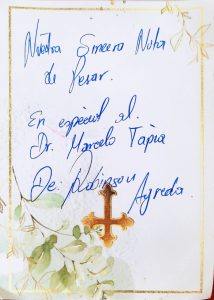 Nuestra Sincera Nota
de Pesar.
En especial al.
Dr. Marcelo Tapia
De: Robinson
Ayreda